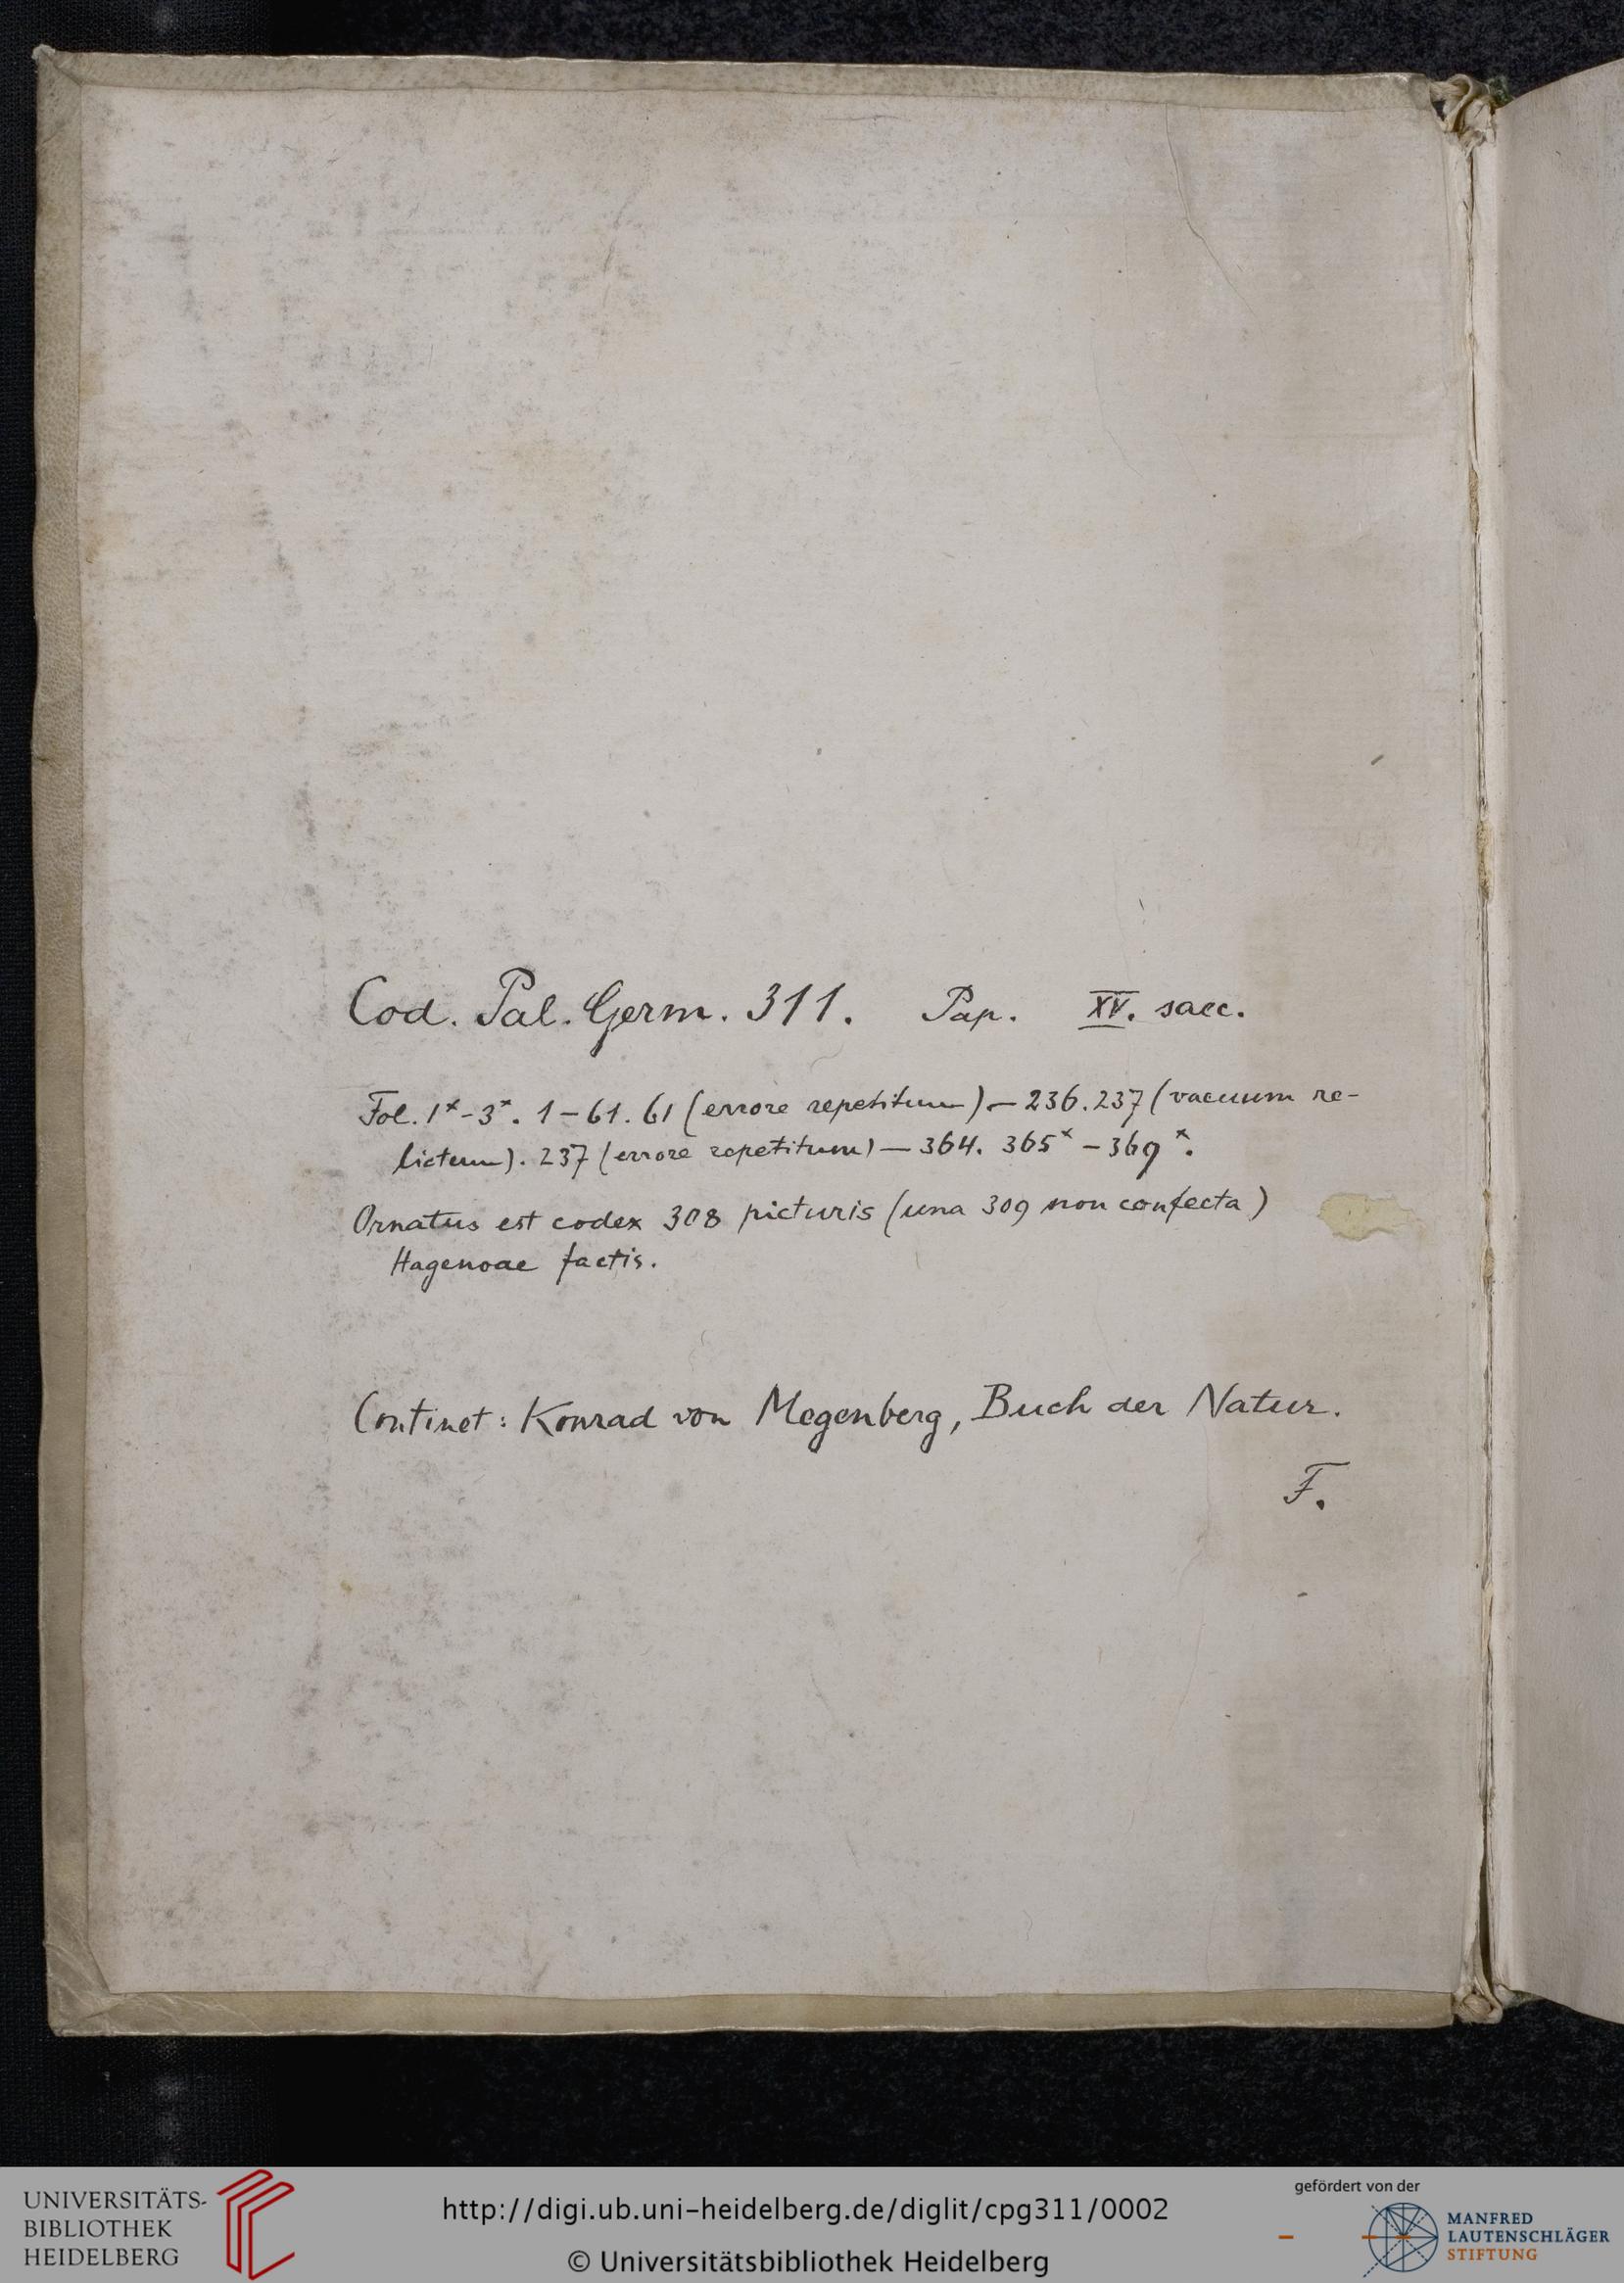 Cod. Pal. Germ. 311. Pap. XV. saec.
Fol. 1* - 3*. 1 – 61. 61 (errore repetitum) – 236. 237 (vacuum re-
lictum). 237 (errore repetitum) – 364. 365* – 369*.
Ornatus est codex 308 picturis (una 309 non confecta)
Hagenoae factis.
Continet: Konrad von Megenberg, Buch der Natur.
F.
UNIVERSITÄTS-
BIBLIOTHEK
HEIDELBERG
http://digi.ub.uni-heidelberg.de/diglit/cpg311/0002
© Universitätsbibliothek Heidelberg
gefördert von der
MANFRED
LAUTENSCHLÄGER
STIFTUNG